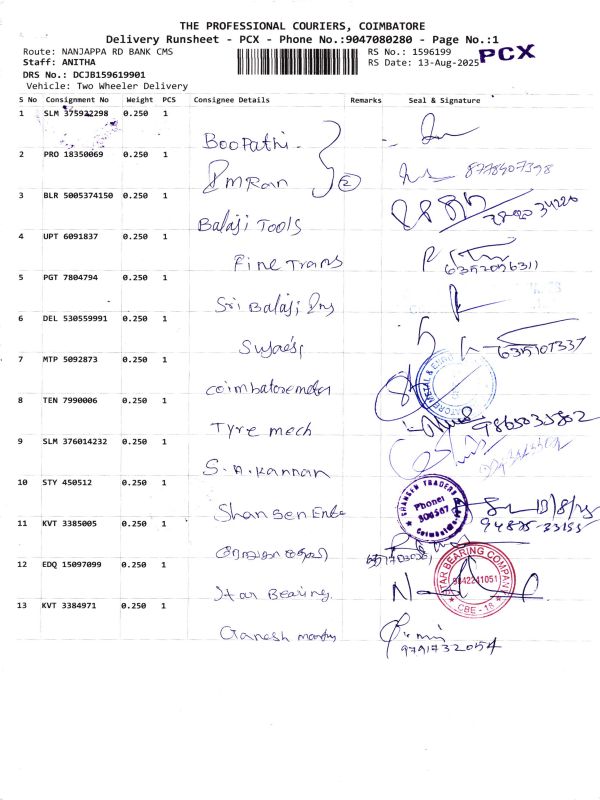 THE PROFESSIONAL COURIERS, COIMBATORE
Delivery Runsheet - PCX - Phone No.:9047080280 - Page No.:1
Route: NANJAPPA RD BANK CMS
RS No.: 1596199
PCX
Staff: ANITHA
RS Date: 13-Aug-2025
DRS No.: DCJB159619901
Vehicle: Two Wheeler Delivery
S No Consignment No Weight PCS Consignee Details Remarks Seal & Signature
1 SLM 375922298 0.250 1
Boopathi.
2 PRO 18350069 0.250 1
Imran 2
8778907398
3 BLR 5005374150 0.250 1
Balaji Tools
4 UPT 6091837 0.250 1
Fine Trans
6352056311
5 PGT 7804794 0.250 1
Sri Balaji
6 DEL 530559991 0.250 1
7 MTP 5092873 0.250 1
Coimbatore metal
8 TEN 7990006 0.250 1
Tyre mech
9865035802
9 SLM 376014232 0.250 1
S. A. Kannan
10 STY 450512 0.250 1
Shansen Ente
SHANSEN TRADERS
Phone:
13/8/25
94875-33155
11 KVT 3385005 0.250 1
12 EDQ 15097099 0.250 1
Star Bearing.
STAR BEARING COMPANY
9842241051
CBE - 18
13 KVT 3384971 0.250 1
Ganesh
9791732054